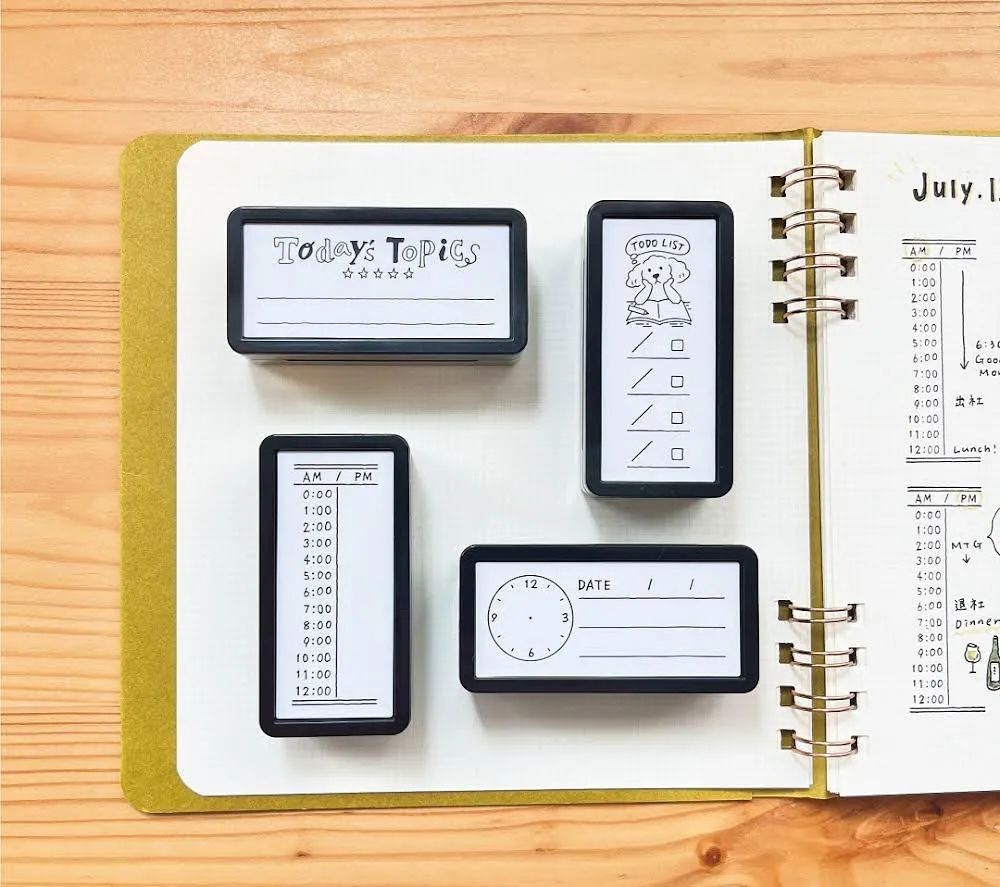 Today's Topics
☆☆☆☆☆
TODO LIST
/ □
/ □
/ □
/ □
AM / PM
0:00
1:00
2:00
3:00
4:00
5:00
6:00
7:00
8:00
9:00
10:00
11:00
12:00
12
9 3
6
DATE / /
July.
AM / PM
0:00
1:00
2:00
3:00
4:00
5:00
6:00
7:00
8:00
9:00 出社
10:00
11:00
12:00 Lunch!
AM / PM
0:00
1:00
2:00 MTG
3:00
4:00
5:00
6:00 退社
7:00 Dinner
8:00
9:00
10:00
11:00
12:00